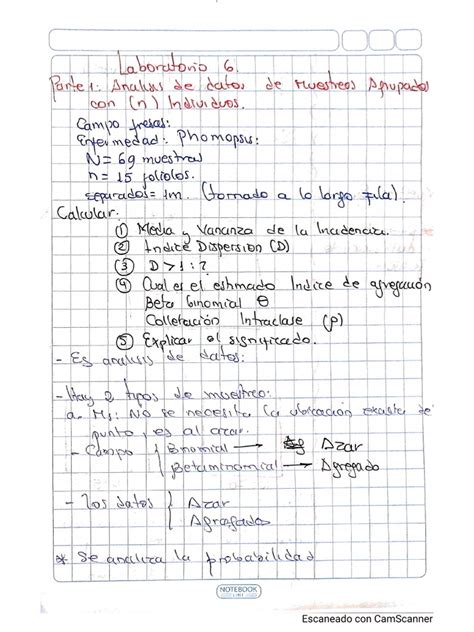 Laboratorio 6.
Parte 1: Analisis de datos de Muestreos Agrupados
con (n) Individuos.
Campo fresas:
Enfermedad: Phomopsis:
N = 69 muestras
n = 15 foliolos.
separados = 1m. (tomado a lo largo fila).
Calcular:
① Media y Varianza de la Incidencia.
② Indice Dispersion (D)
③ D > 1 : ?
④ Cual es el estimado Indice de agregación
Beta binomial θ
Intraclase (ρ)
⑤ Explicar el significado.
- Es analisis de datos:
- Hay 2 tipos de muestreo:
a. M1: No se necesita la ubicación exacta de
punto, es al azar.
- Campo { Binomial → Azar
Betaminomial → Agregado
- Los datos { Azar
Agregados
* Se analiza la probabilidad
NOTEBOOK
Escaneado con CamScanner